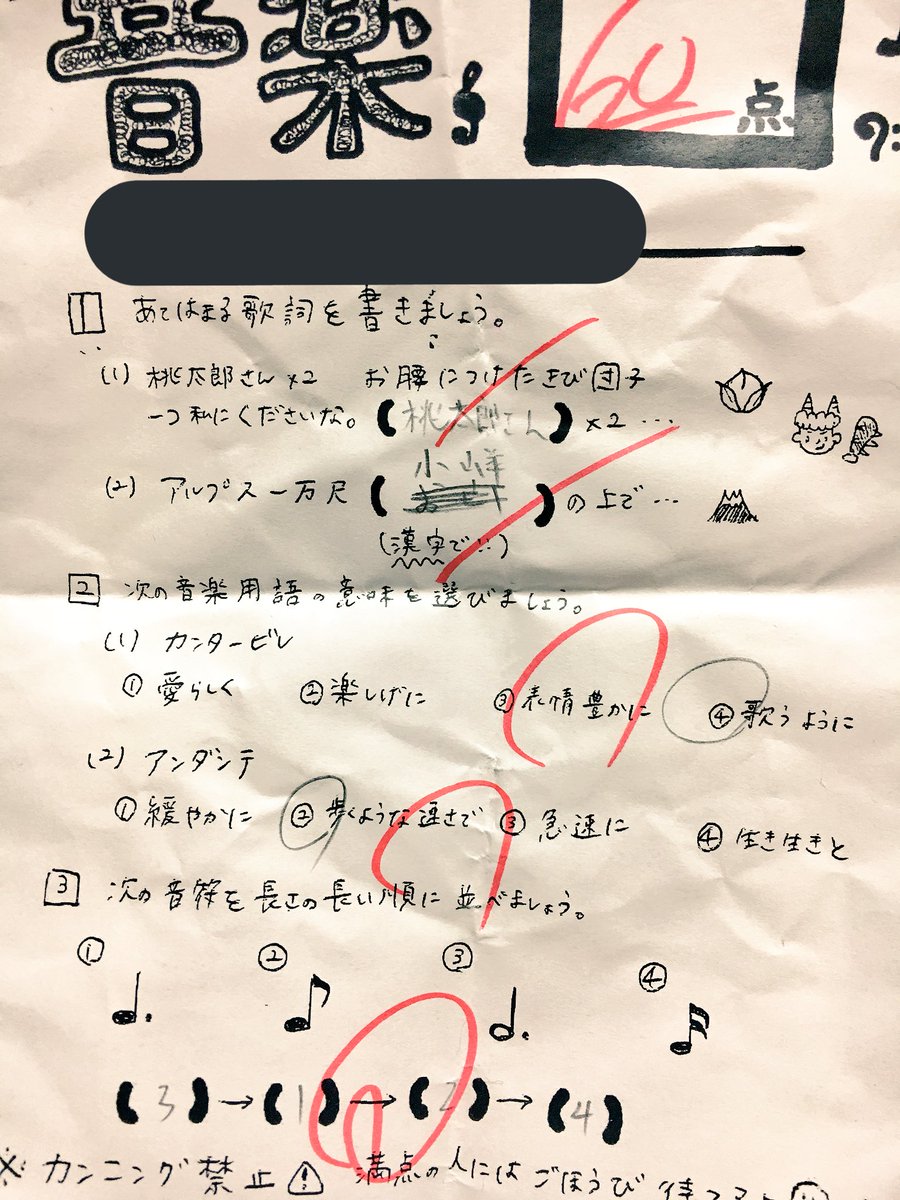 音楽
60点
1 あてはまる歌詞を書きましょう。
(1) 桃太郎さん×2 お腰につけたきび団子
一つ私にくださいな。(桃太郎さん)×2…
小峰
(2) アルプス一万尺 ( )の上で…
(漢字で!!)
2 次の音楽用語の意味を選びましょう。
(1) カンタービレ
①愛らしく ②楽しげに ③表情豊かに ④歌うように
(2) アンダンテ
①緩やかに ②歩くような速さで ③急速に ④生き生きと
3 次の音符を長さの長い順に並べましょう。
① ② ③ ④
(3)→(1)→(2)→(4)
※カンニング禁止 満点の人にはごほうび